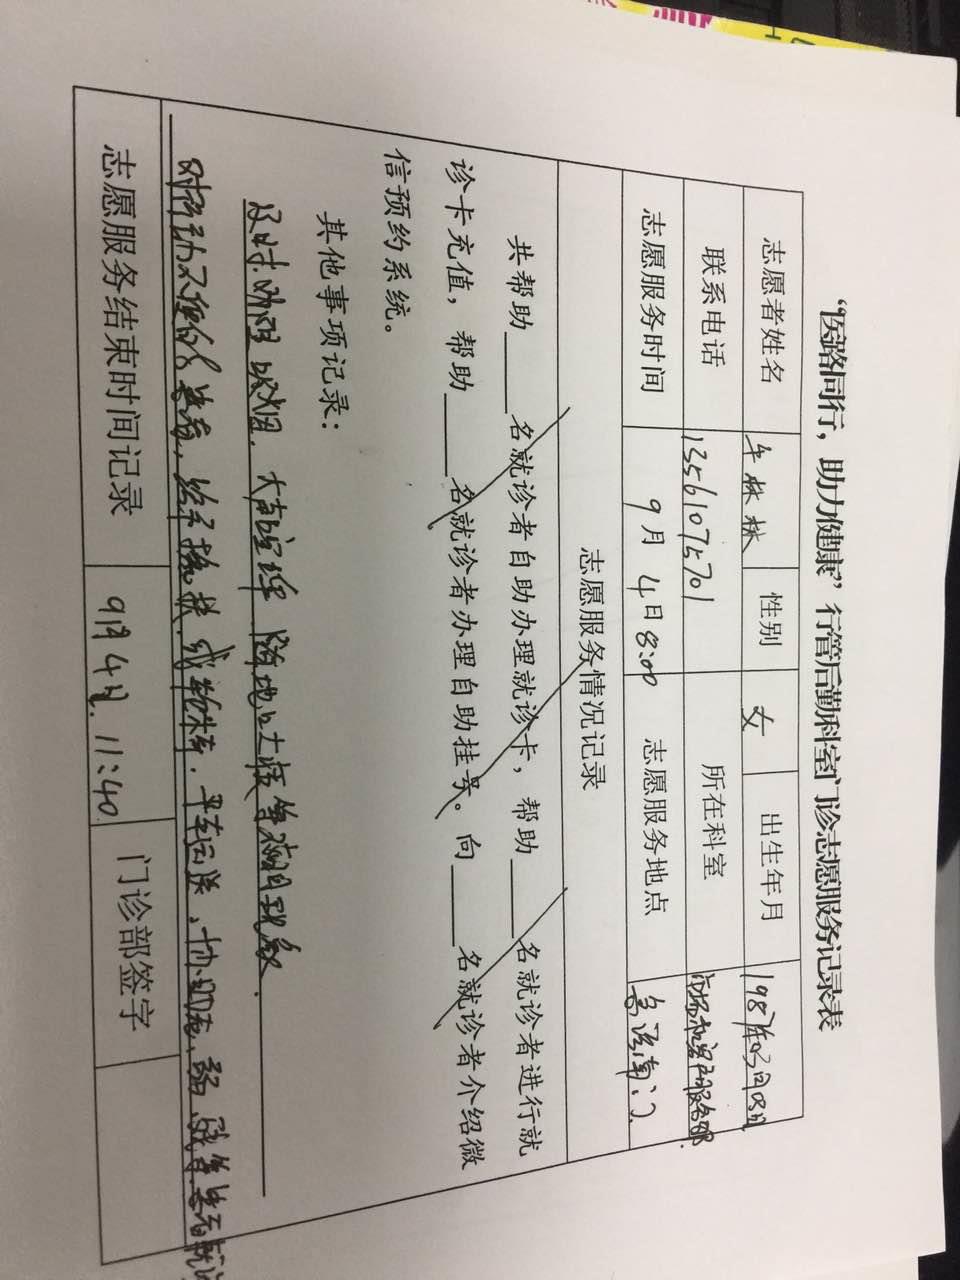 “医路同行，助力健康”行管后勤科室门诊志愿服务记录表
志愿者姓名 牟林林 性别 女 出生年月 1987年03月08日
联系电话 13561075701 所在科室 服务部
志愿服务时间 9月4日8:00 志愿服务地点 南门
志愿服务情况记录
共帮助____名就诊者自助办理就诊卡，帮助____名就诊者进行就
诊卡充值，帮助____名就诊者办理自助挂号。向____名就诊者介绍微
信预约系统。
其他事项记录：
及时劝阻吸烟、大声喧哗、随地吐痰等不文明现象.
对行动不便的患者，给予搀扶或轮椅车、平车运送、协助老、弱、残等患者就诊
志愿服务结束时间记录 9月4日.11:40 门诊部签字